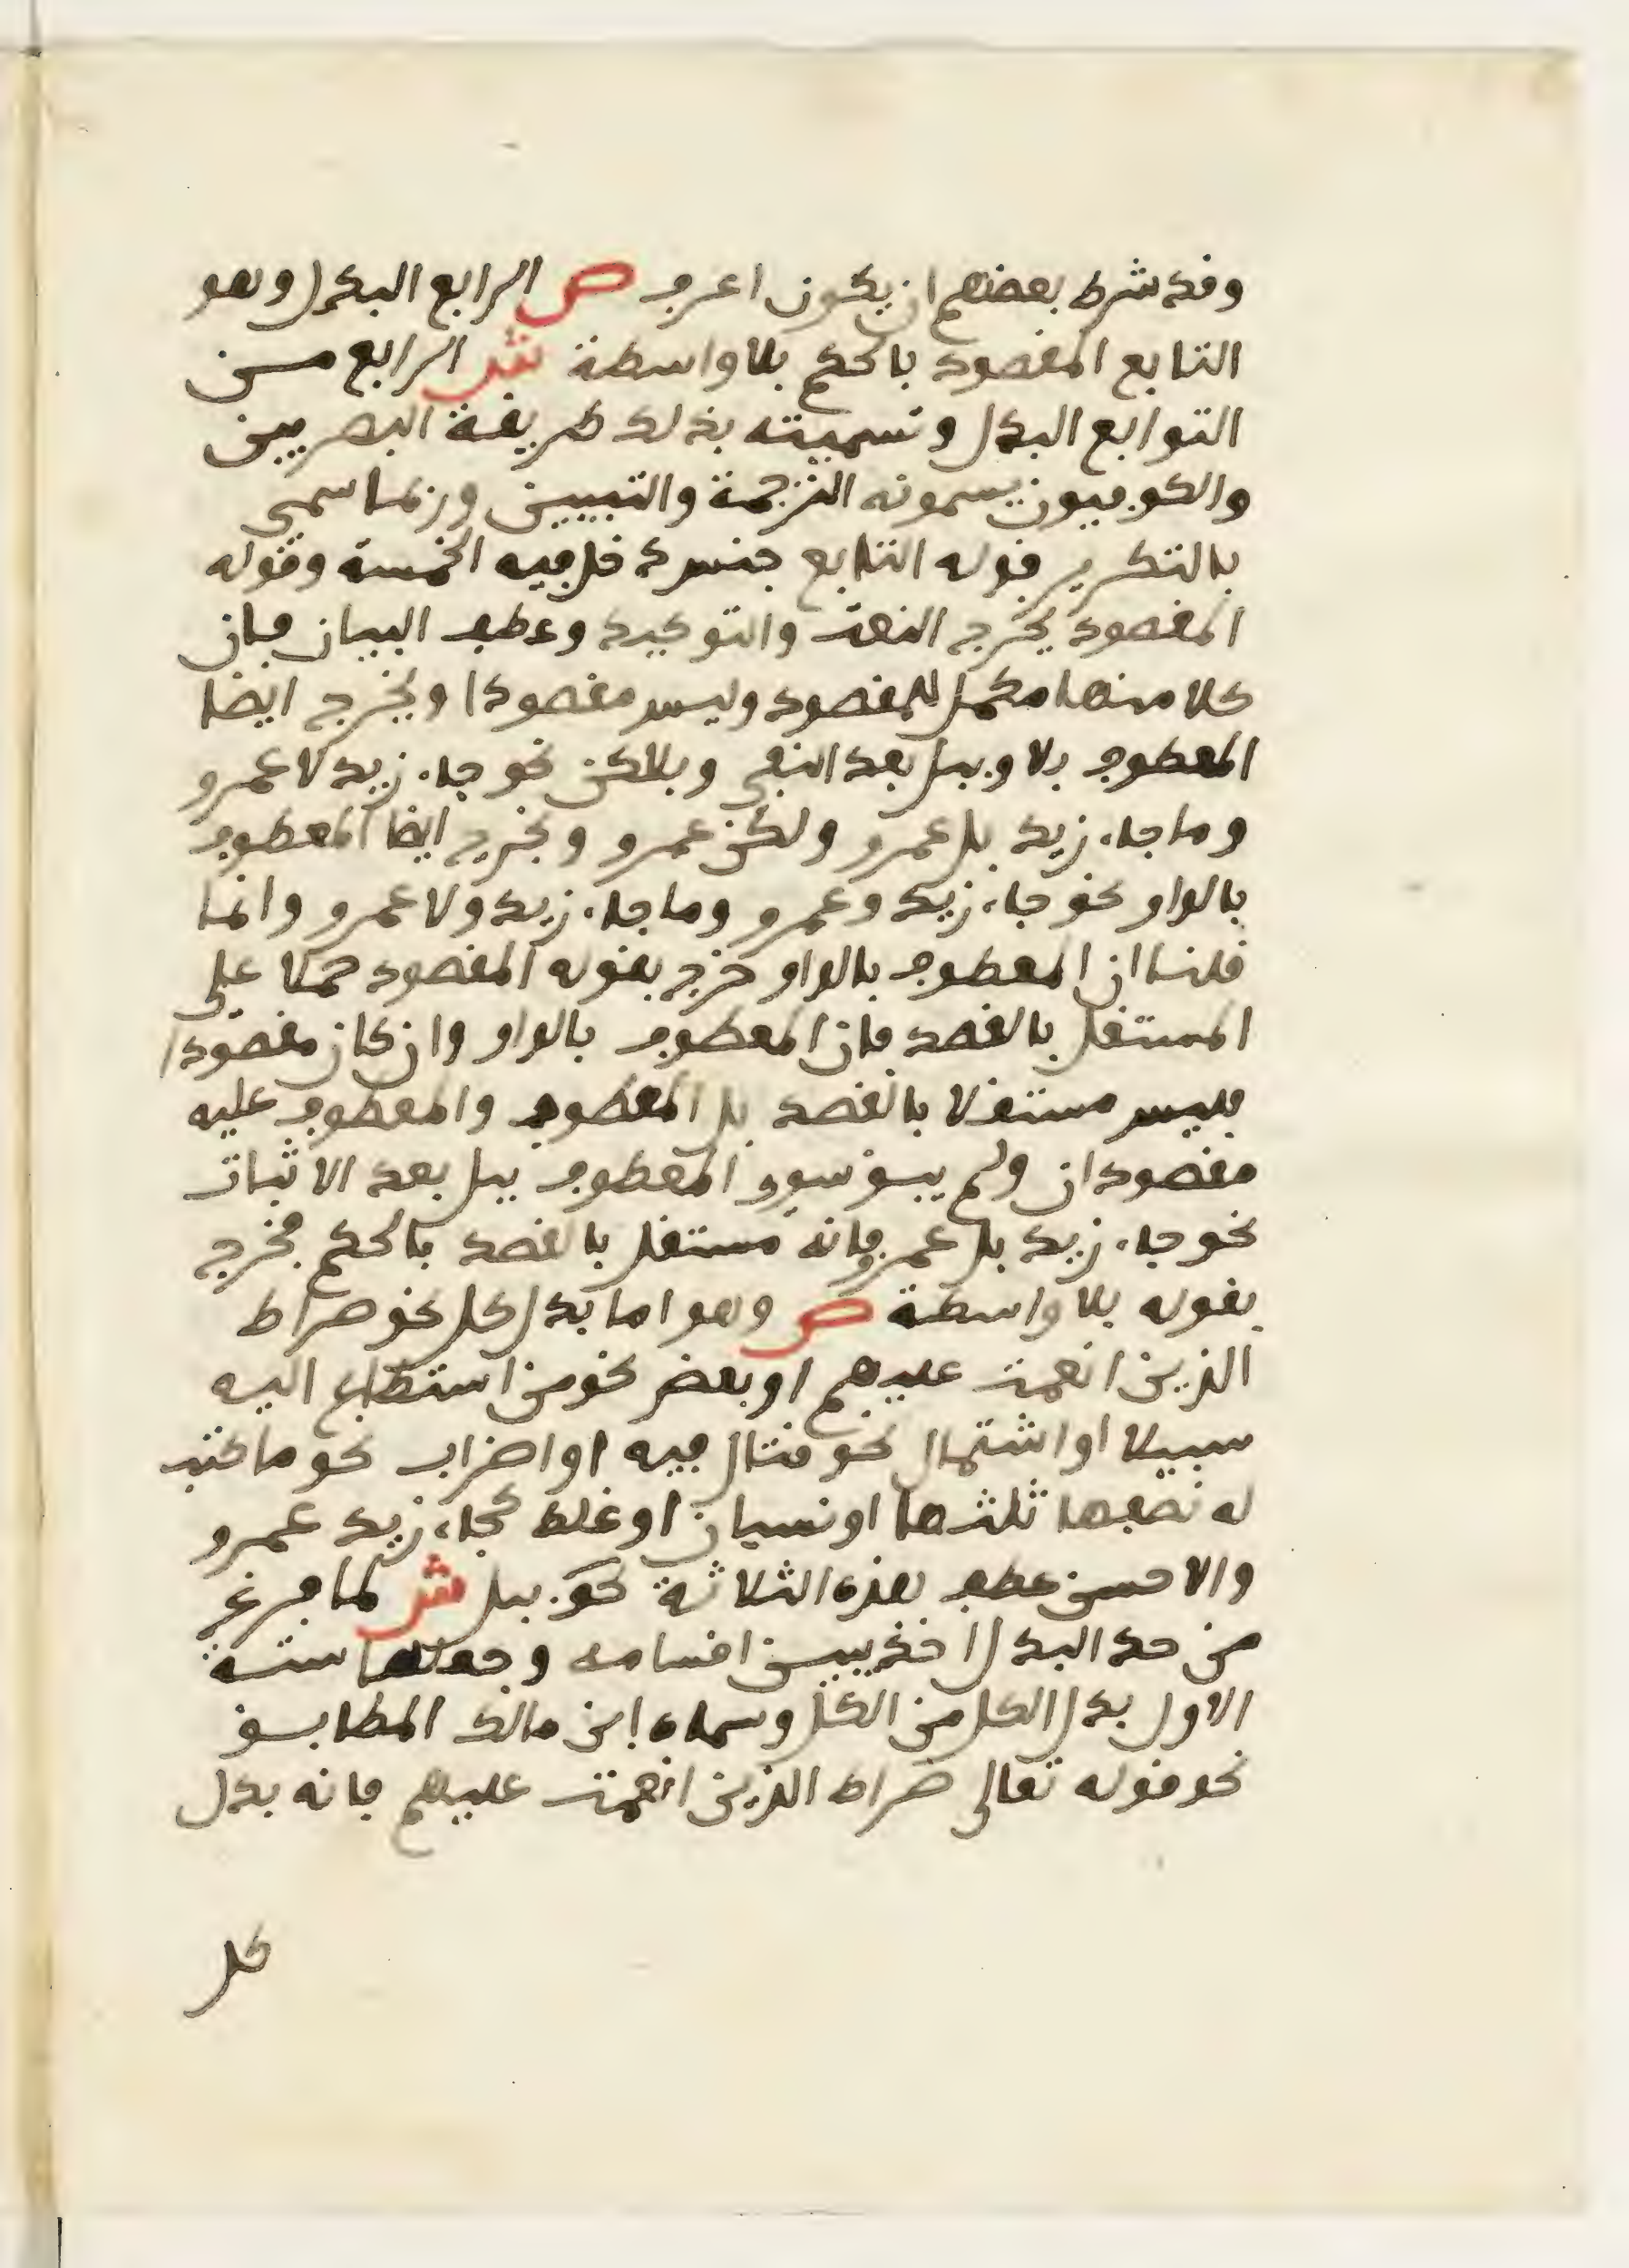 وقد شرط بعضهم ان يكون اعرف ص الرابع البدل وهو
التابع المقصود بالحكم بلا واسطة ش الرابع مـن
التوابع البدل وتسميته بذلك طريقة البصريين
والكوفيون يسمونه الترجمة والتبيين وربما سمي
بالتكرير فوله التابع جنس دخل فيه الخمسة وقوله
المقصود يخرج النعت والتوكيد وعطف البيان فان
كلا منها مكمل للمقصود وليس مقصودا ويخرج ايضا
المعطوف بلا وببل بعد النفي وبلاكن نحو جاء زيد لا عمرو
وما جاء زيد بل عمرو ولكن عمرو ويخرج ايضا المعطوف
بالواو نحو جاء زيد وعمرو وما جاء زيد ولا عمرو وانما
قلنا ان المعطوف بالواو خرج بقوله المقصود حملا على
المستقل بالقصد فان المعطوف بالواو وان كان مقصودا
فليس مستقلا بالقصد بل المعطوف والمعطوف عليه
مقصودان ولم يبق سوى المعطوف ببل بعد الاثبات
نحو جاء زيد بل عمرو فانه مستقل بالقصد بالحكم فخرج
بقوله بلا واسطة ص وهو اما بدل كل نحو صراط
الذين انعمت عليهم او بعض نحو من استطاع اليه
سبيلا او اشتمال نحو قتال فيه او اضراب نحو ما كتب
له نصفها ثلثها او نسيان او غلط كجاء زيد عمرو
والاحسن عطف هذه الثلاثة نحو ببل ش لما فرغ
من حد البدل اخذ يبين اقسامه وجعلها ستة
الاول بدل الكل من الكل وسماه ابن مالك المطابق
نحو قوله تعالى صراط الذين انعمت عليهم فانه بدل
كل